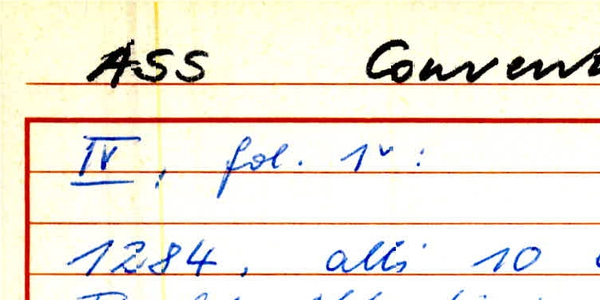 ASS Convent
IV, fol. 1v:
1284, alli 10